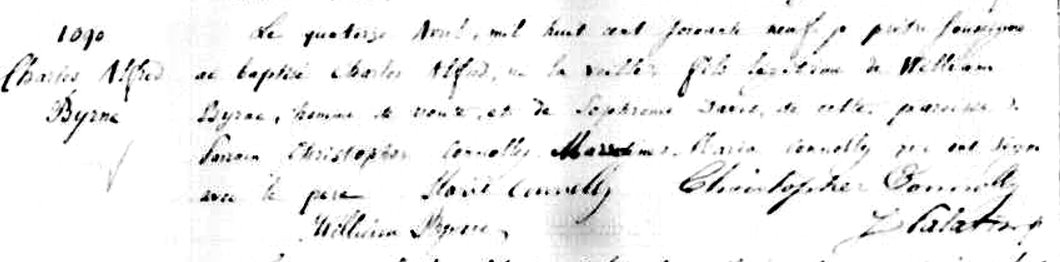 1090
Charles Alfred
Byrne
Le quatorze Avril, mil huit cent soixante neuf, je prêtre soussigné
ai baptisé Charles Alfred, né la veille, fils légitime de William
Byrne, homme de et de Sophronie Davis, de cette paroisse.
Parrain Christopher Connolly Marraine Maria Connolly qui ont signé
avec le père Maria Connolly Christopher Connolly
William Byrne